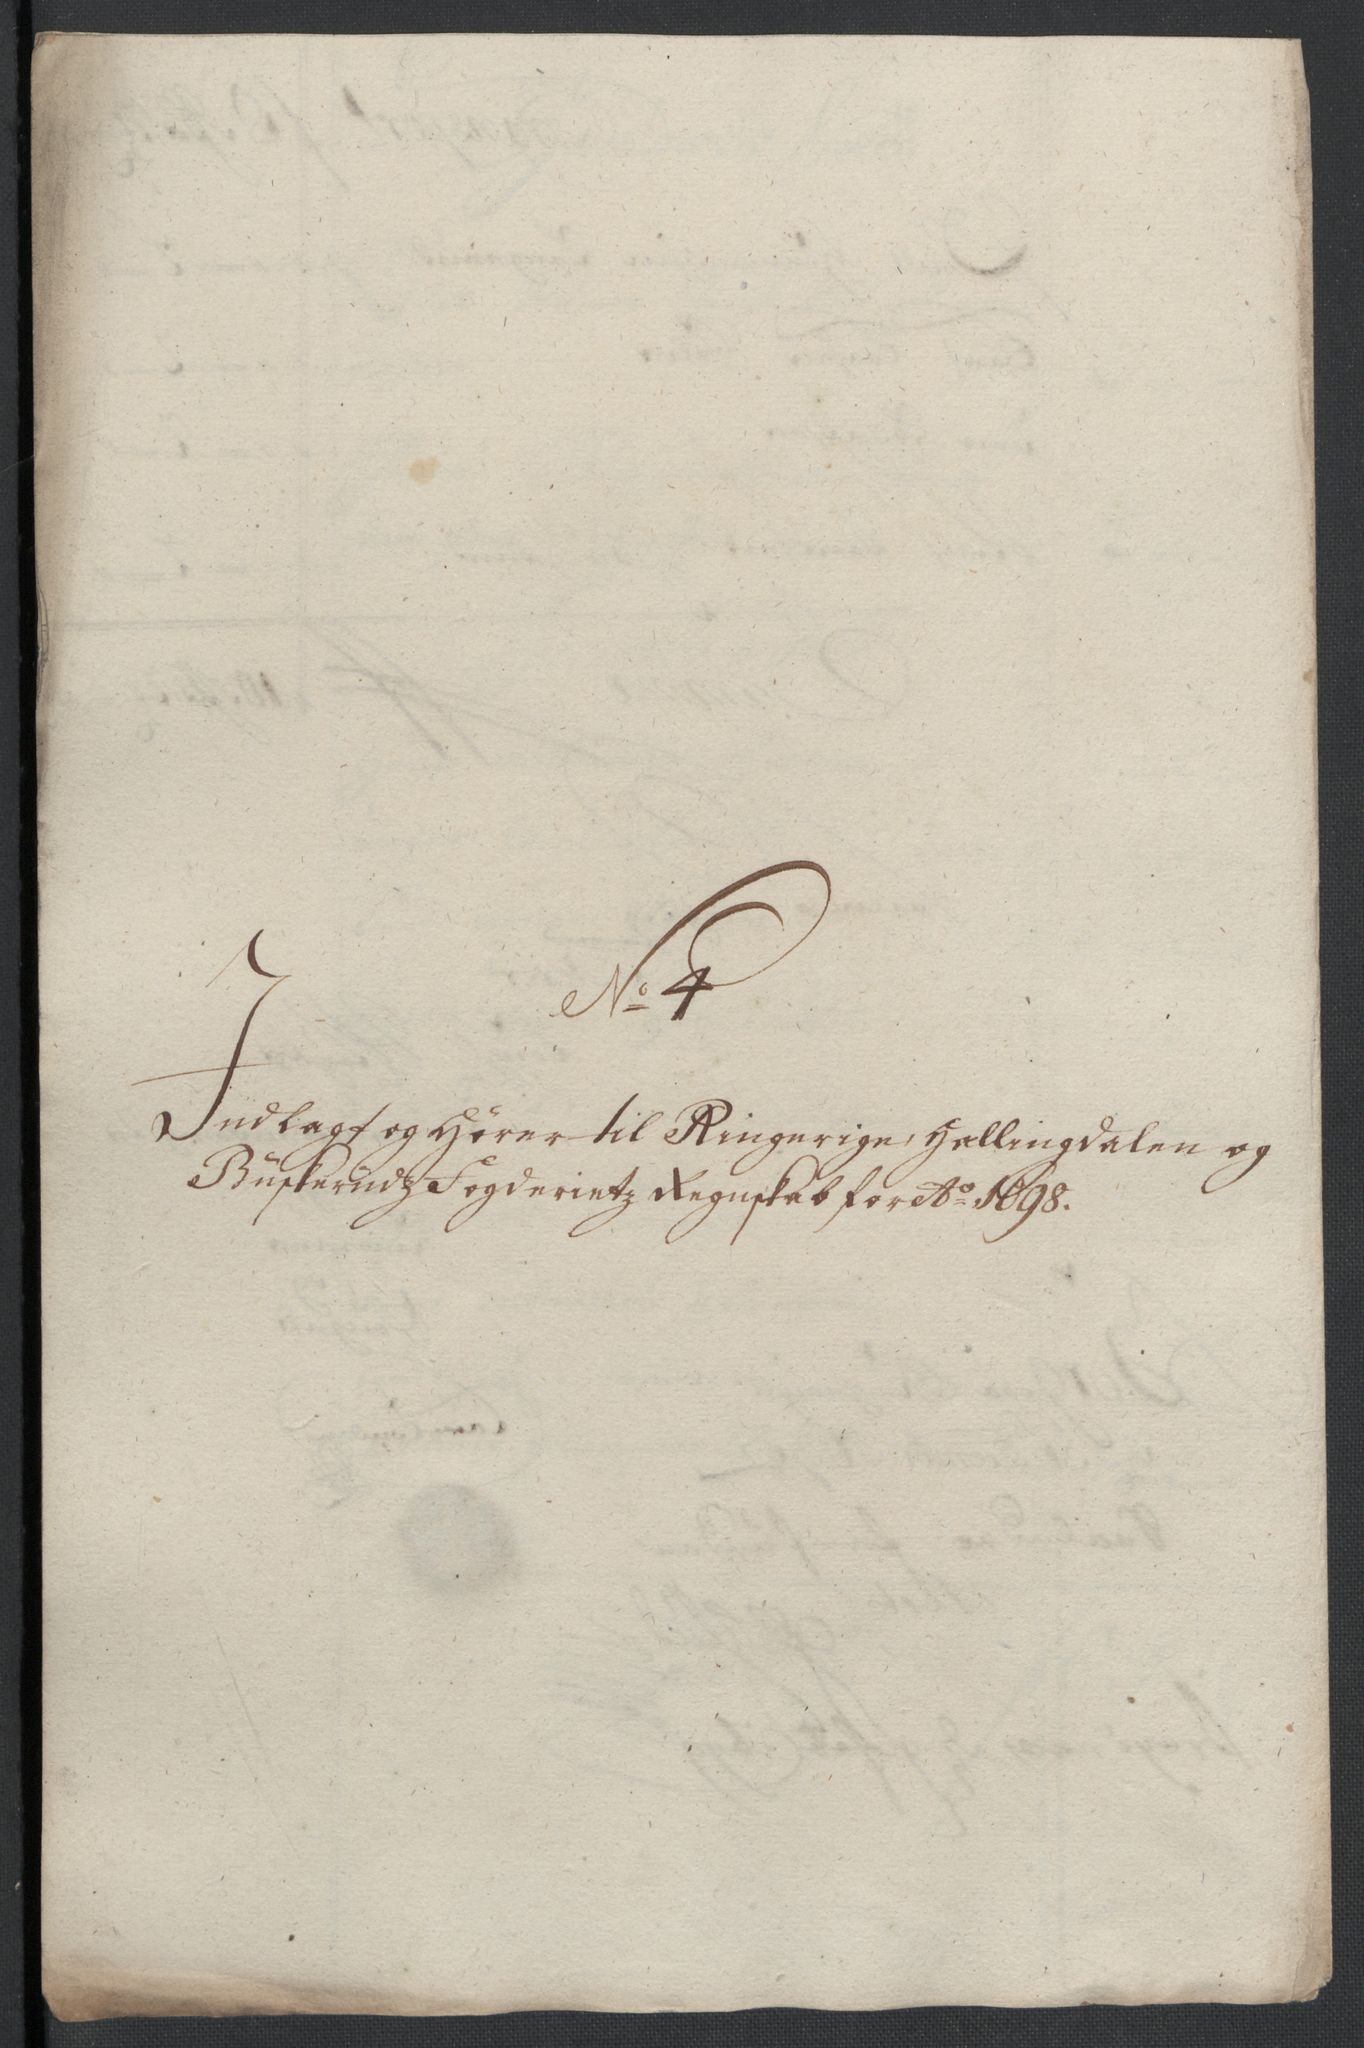 No 4
Indlagt og Hører til Ringerige, Hallingdalen og
Buskerudz Fogderietz Regnskab for Ao 1698.